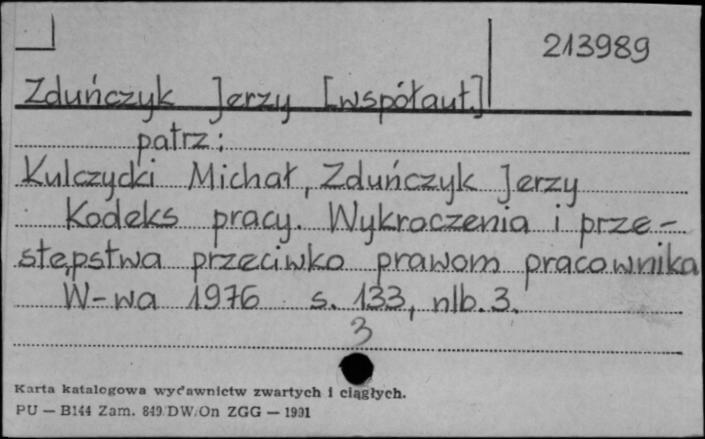 213989
Zduńczyk Jerzy [współaut.]
patrz:
Kulczycki Michał, Zduńczyk Jerzy
Kodeks pracy. Wykroczenia i prze-
stępstwa przeciwko prawom pracownika
W-wa 1976 s. 133, nlb. 3.
3
Karta katalogowa wydawnictw zwartych i ciągłych.
PU — B144 Zam. 849/DW/On ZGG — 1991